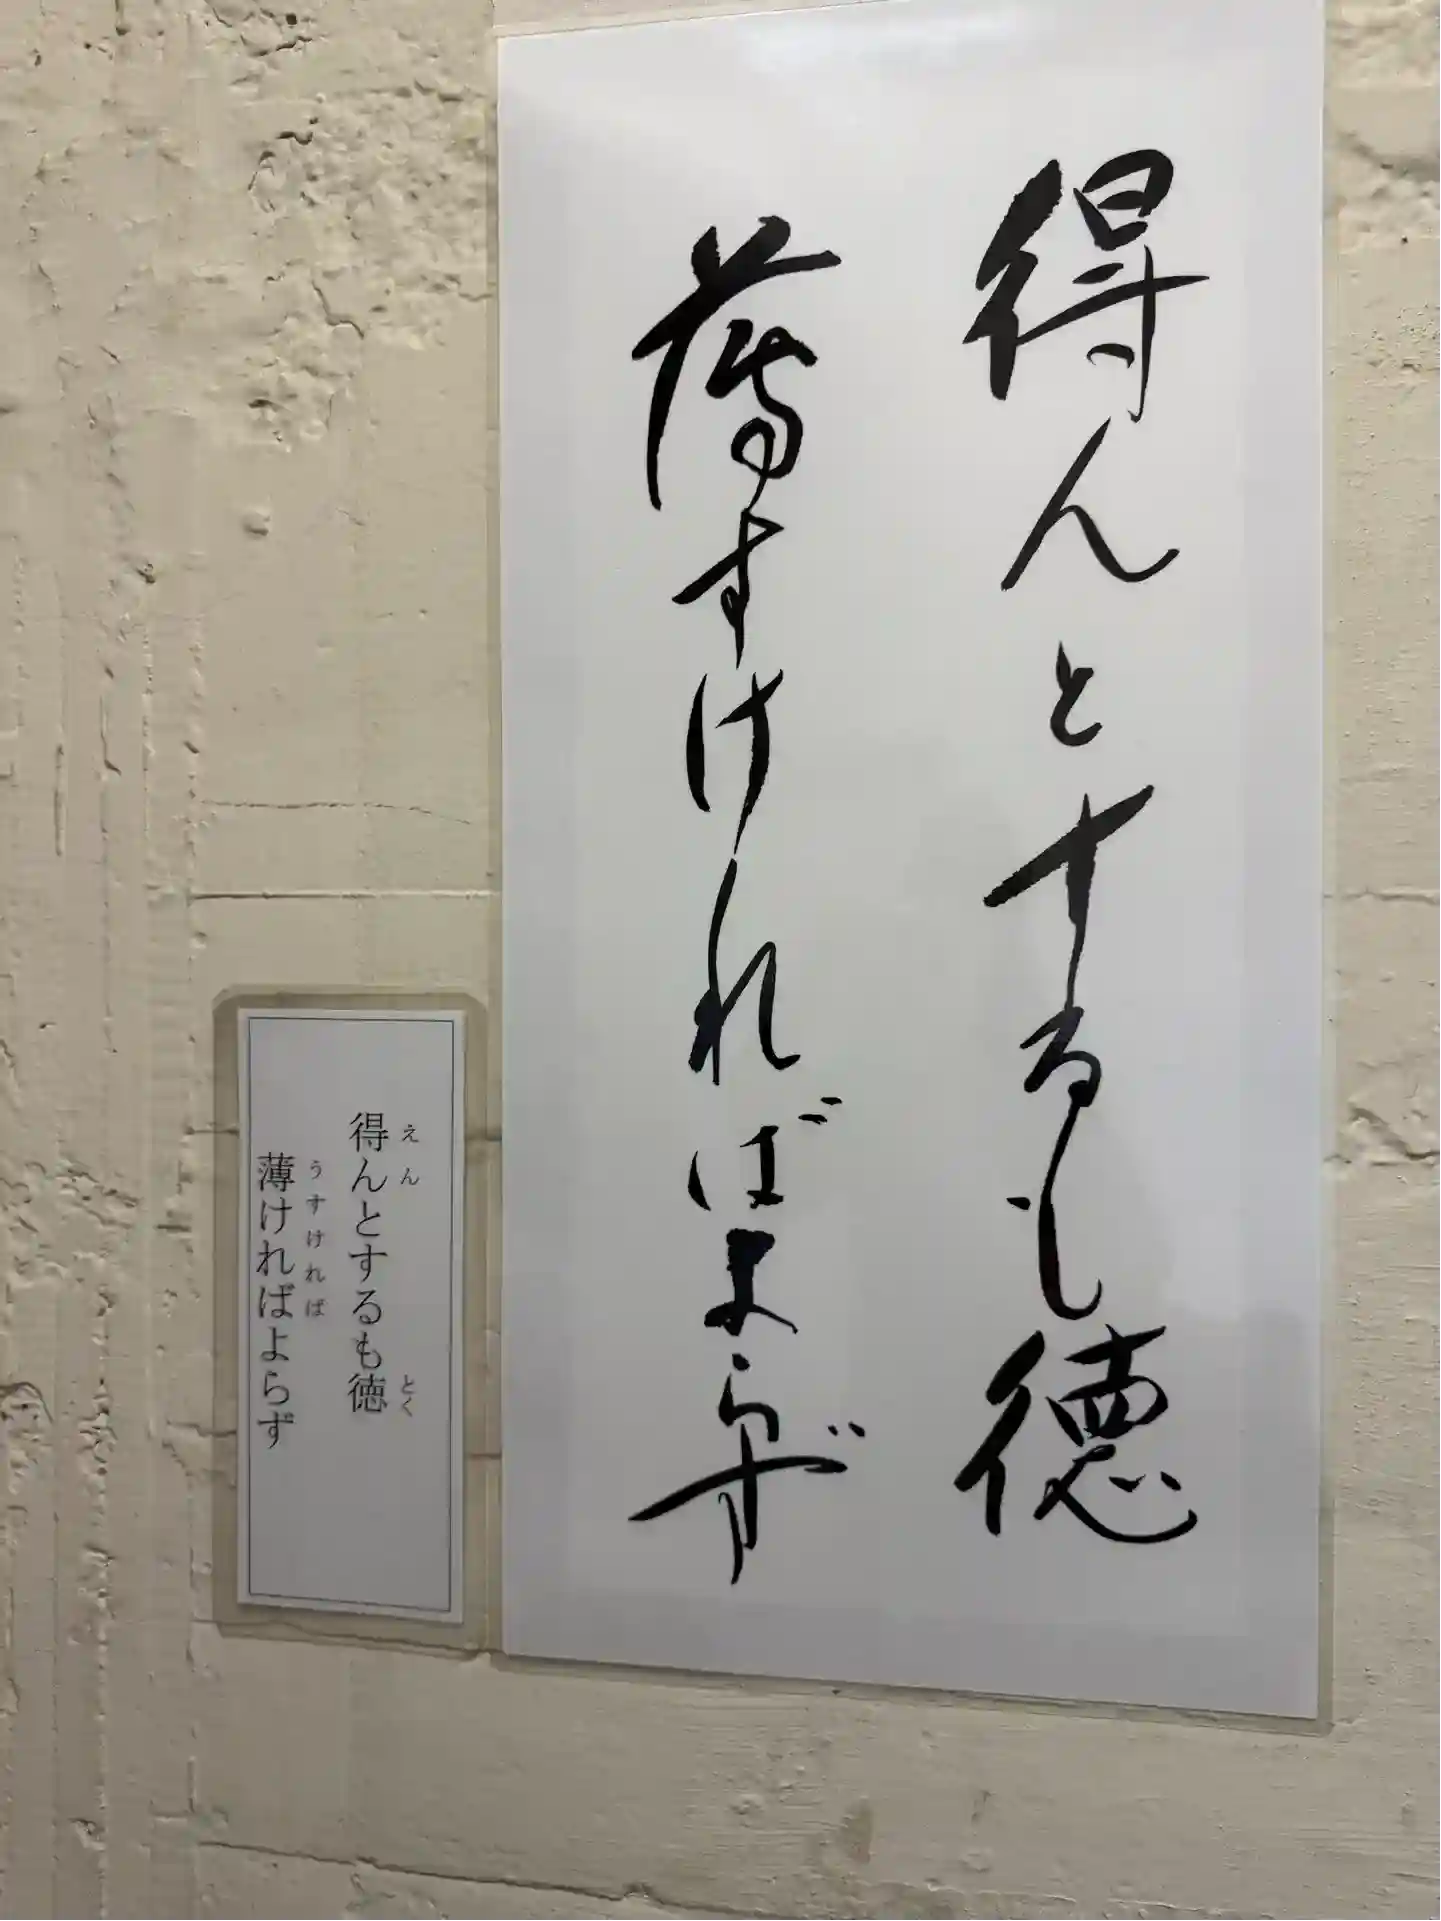 得んとするも徳
薄すければよらず
えん とく
得んとするも徳
うすければ
薄ければよらず